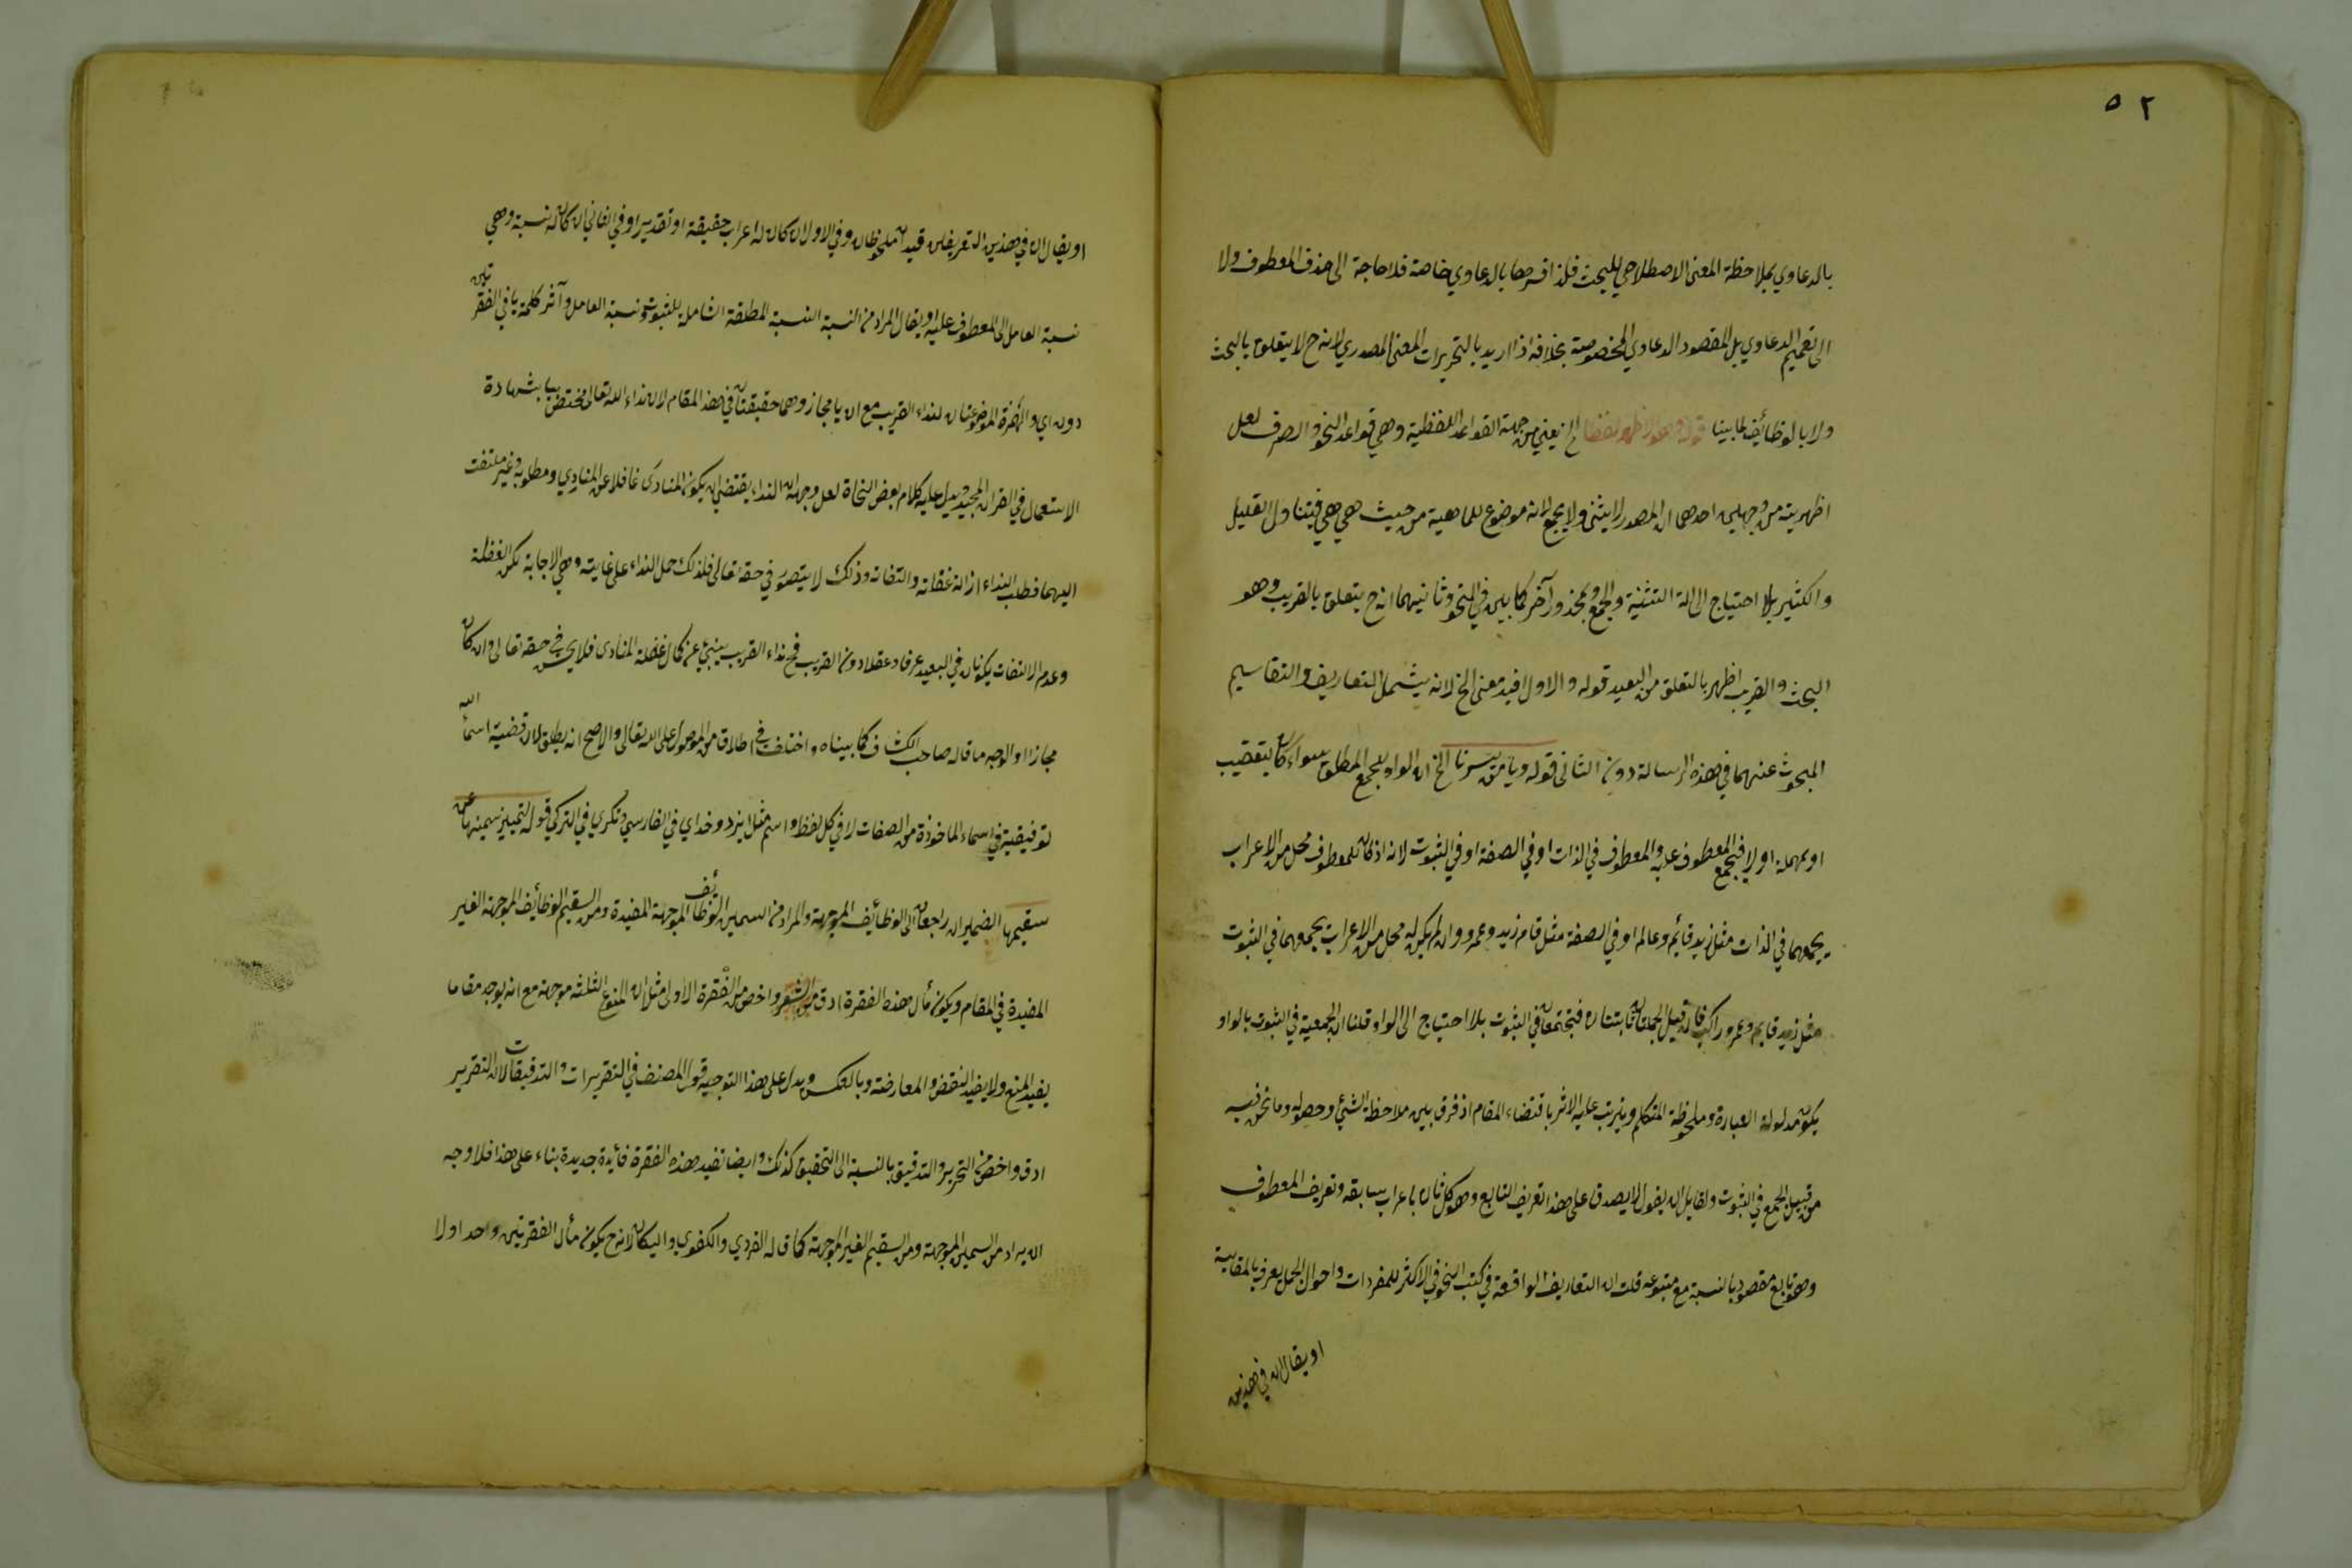 ٥٢
بالدعاوي بملاحظة المعنى الاصطلاحي للبحث فلذا فسرها بالدعاوي خاصة فلا حاجة الى حذف المعطوف ولا
الى تعميم الدعاوي بل المقصود الدعاوي المخصوصة بخلافه اذا اريد بالتحريرات المعنى المصدري لانه ح لا يتعلق بالبحث
ولا بالوظائف لما بينا قوله وهو الاظهر لفظا الخ يعني من جهة القواعد اللفظية وهي قواعد النحو والصرف لعل
اظهريته من وجهين احدهما ان المصدر لا يثنى ولا يجمع لانه موضوع للماهية من حيث هي هي فيتناول القليل
والكثير بلا احتياج الى الة التثنية والجمع ومحذور آخر كما بين في النحو وثانيهما انه ح يتعلق بالقريب وهو
البحث والقريب اظهر بالتعلق من البعيد قوله والاول افيد معنى الخ لانه يشمل التعاريف والتقاسيم
المبحوث عنهما في هذه الرسالة دون الثاني قوله ويا من يسرنا الخ ان الواو للجمع المطلق سواء كان بتعقيب
او بمهلة او لا فيجمع المعطوف عليه والمعطوف في الذات او في الصفة او في الثبوت لانه اذا كان للمعطوف محل من الاعراب
يجمعهما في الذات مثل زيد قائم وعالم او في الصفة مثل قام زيد وعمرو وان لم يكن له محل من الاعراب يجمعهما في الثبوت
مثل زيد قايم وعمرو راكب فان قيل الجملتان ثابتتان فتجتمعان في الثبوت بلا احتياج الى الواو قلنا ان الجمعية في الثبوت بالواو
يكون مدلولة العبارة وملحوظة المتكلم ويترتب عليه الاثر باقتضاء المقام اذ فرق بين ملاحظة الشيئ وحصوله وما نحن فيه
من قبيل الجمع في الثبوت ولقايل ان يقول لا يصدق على هذا تعريف التابع وهو كل ثان باعراب سابقه وتعريف المعطوف
وهو تابع مقصود بالنسبة مع متبوعه قلت ان التعاريف الواقعة في كتب النحو في الاكثر للمفردات واحوال الجمل يعرف بالمقايسة
او يقال ان في هذين
او يقال ان في هذين التعريفين قيدان ملحوظان وفي الاول ان كان له اعراب حقيقة او تقديرا وفي الثاني ان كان له نسبة وهي
نسبة العامل الى المعطوف عليه او يقال المراد من النسبة النسبة المطلقة الشاملة للثبوت ونسبة العامل وآثر كلمة يا في الفقرتين
دون اي والهمزة الموضوعتان لنداء القريب مع ان يا مجاز وهما حقيقتان في هذا المقام لان نداء الله تعالى مختص بيا بشهادة
الاستعمال في القرآن المجيد ويدل عليه كلام بعض النحاة لعل وجهه ان النداء يقتضي ان يكون المنادى غافلا عن المنادي ومطلوبه وغير ملتفت
اليهما فطلب النداء ازالة غفلته والتفاته وذلك لا يتصور في حقه تعالى فلذلك حمل النداء على غايته وهي الاجابة لكن الغفلة
وعدم الالتفات يكونان في البعيد عرفا وعقلا دون القريب فح نداء القريب ينبئ عن كمال غفلة المنادى فلا يحسن في حقه تعالى وان كان
مجازا او الوجه ما قاله صاحب الكشاف كما بيناه واختلف في اطلاق من الموصول على الله تعالى والاصح انه يطلق لان قضية اسماء الله
توقيفية في اسماء الماخوذة من الصفات لا في كل لفظ واسم مثل ايزد وخداي في الفارسي وتكري في التركي قوله لتمييز سمينها عن
سقيمها الضميران راجعان الى الوظائف الموجهة والمراد من السمين الوظائف الموجهة المفيدة ومن السقيم الوظائف الموجهة الغير
المفيدة في المقام ويكون مأل هذه الفقرة ادق من الشعر واخص من الفقرة الاولى مثل ان المنوع الثلثة موجهة مع انه يوجد مقاما
يفيد المنع ولا يفيد النقض والمعارضة وبالعكس ويدل على هذا التوجيه قول المصنف في التقريرات والتدقيقات لان التقرير
ادق واخص من التحرير والتدقيق بالنسبة الى التحقيق كذلك وايضا تفيد هذه الفقرة فائدة جديدة بناء على هذا فلا وجه
ان يراد من السمين الموجهة ومن السقيم الغير الموجهة كما قاله القردي والكفوي واليكاني لانه ح يكون مأل الفقرتين واحدا ولا